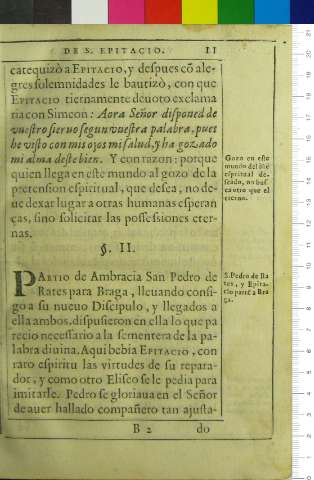 DE S. EPITACIO. 11
catequizò a EPITACIO, y despues cõ ale-
gres solemnidades le bautizò, con que
EPITACIO tiernamente deuoto exclama
ria con Simeon: Aora Señor disponed de
vuestro sieruo segun vuestra palabra, pues
he visto con mis ojos mi salud, y ha gozado
mi alma deste bien. Y con razon: porque
quien llega en este mundo al gozo de la
pretension espiritual, que desea, no de-
ue dexar lugar a otras humanas esperan
ças, sino solicitar las possessiones eter-
nas.
Goza en este
mundo del biē
espritual de-
seado, no bus
ca otro que el
eterno.
§. II.
PARTIO de Ambracia San Pedro de
Rates para Braga, lleuando consi-
go a su nueuo Discipulo, y llegados a
ella ambos, dispusieron en ella lo que pa
recio necessario a la sementera de la pa-
labra diuina. Aqui bebia EPITACIO, con
raro espiritu las virtudes de su repara-
dor, y como otro Eliseo se le pedia para
imitarle. Pedro se gloriaua en el Señor
de auer hallado compañero tan ajusta-
S. Pedro de Ra
tes, y Epita-
cio partē a Bra
ga.
B 2 do